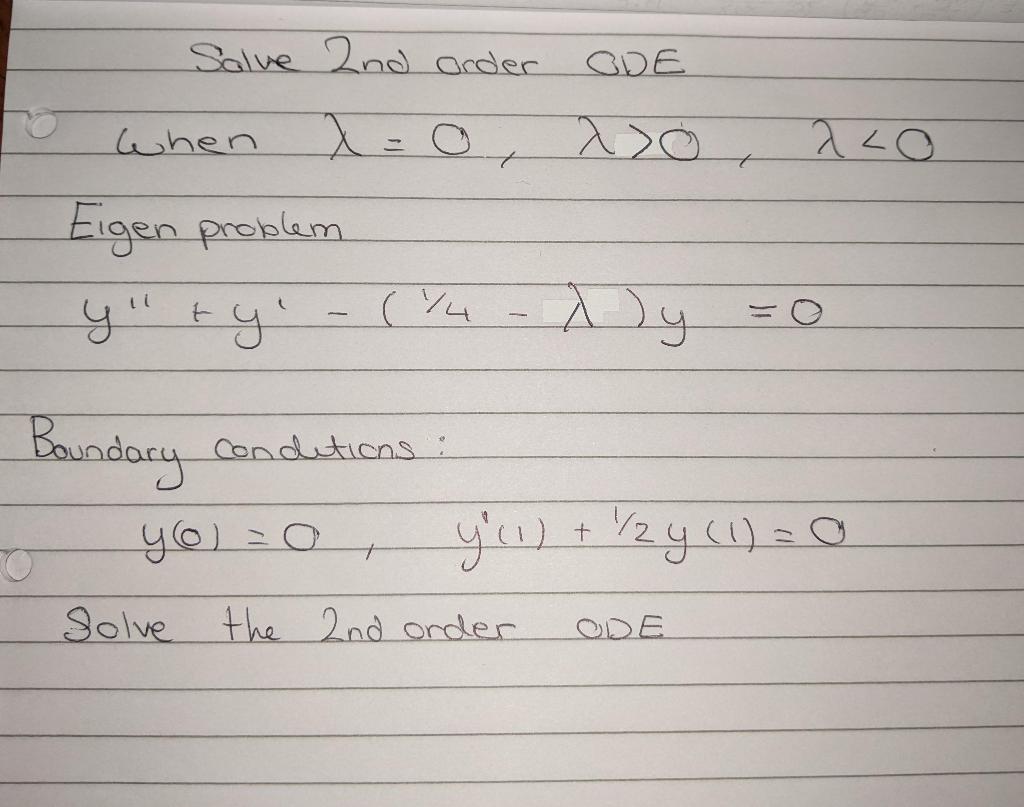 Solve 2nd order ODE
when λ = 0, λ > 0, λ < 0
Eigen problem
y'' + y' - (1/4 - λ)y = 0
Boundary conditions:
y(0) = 0, y'(1) + 1/2 y(1) = 0
Solve the 2nd order ODE